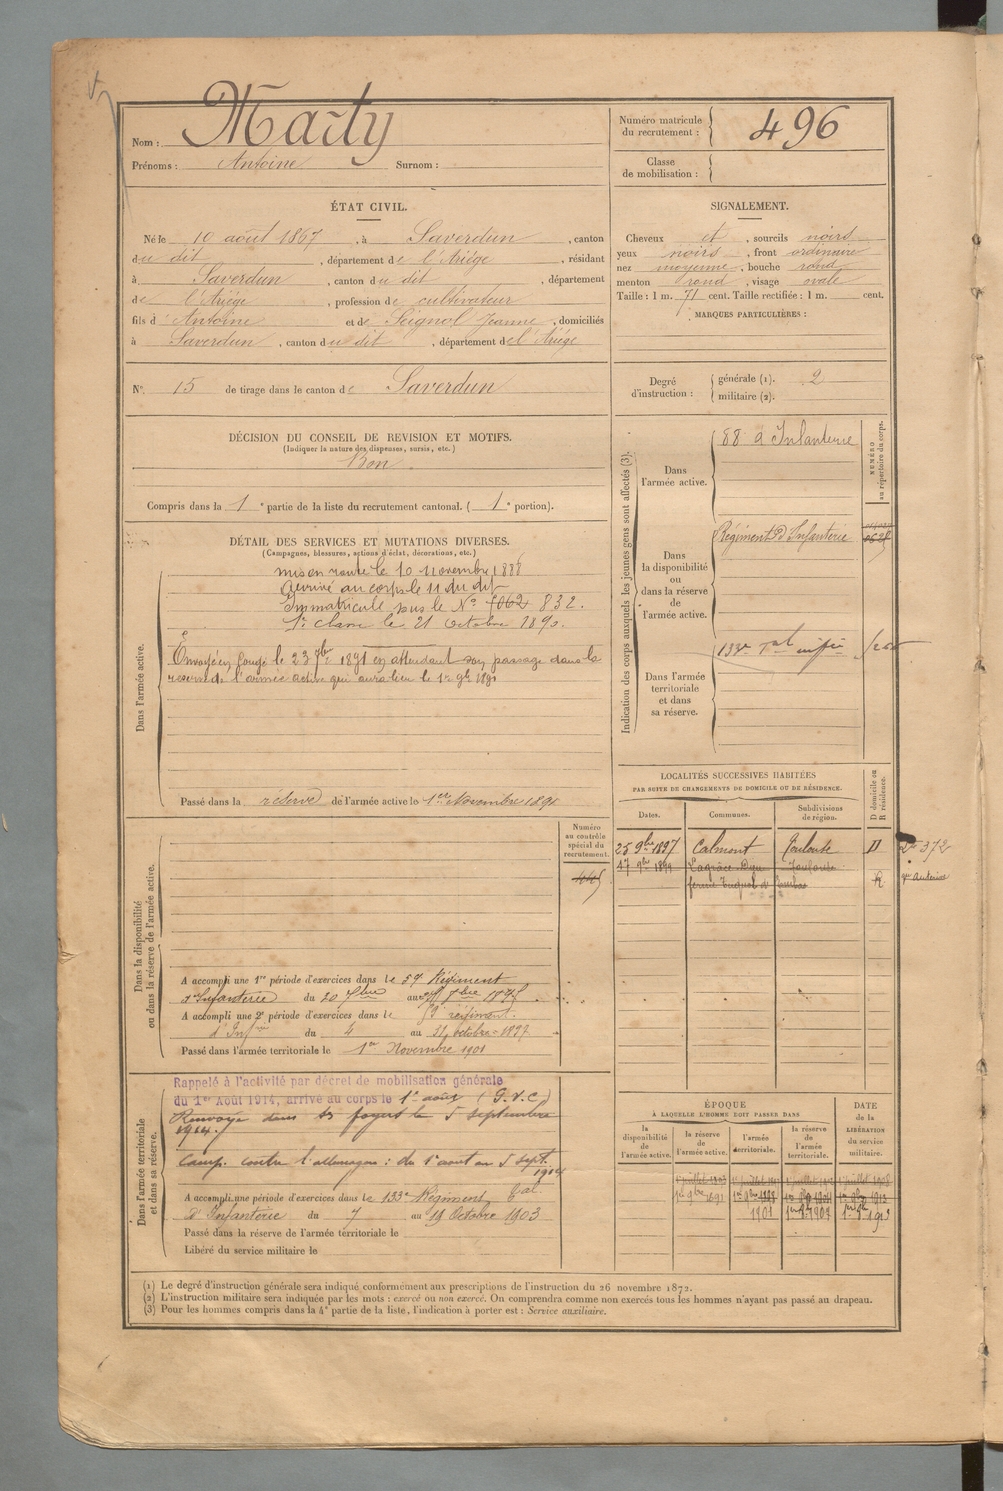 Nom : Marty
Prénoms : Antoine Surnom :
Numéro matricule du recrutement : 496
Classe de mobilisation :
ÉTAT CIVIL.
Né le 10 août 1867, à Saverdun, canton
du dit, département de l'Ariège, résidant
à Saverdun, canton du dit, département
de l'Ariège, profession de cultivateur
fils d'Antoine et de Seignol Jeanne, domiciliés
à Saverdun, canton du dit, département de l'Ariége
SIGNALEMENT.
Cheveux et, sourcils noirs
yeux noirs, front ordinaire
nez moyenne, bouche rond
menton rond, visage ovale
Taille : 1 m. 71 cent. Taille rectifiée : 1 m. cent.
MARQUES PARTICULIÈRES :
N° 15 de tirage dans le canton de Saverdun
Degré d'instruction :
générale (1). 2
militaire (2).
DÉCISION DU CONSEIL DE REVISION ET MOTIFS.
(Indiquer la nature des dispenses, sursis, etc.)
Bon.
Compris dans la 1e partie de la liste du recrutement cantonal. (1e portion).
DÉTAIL DES SERVICES ET MUTATIONS DIVERSES.
(Campagnes, blessures, actions d'éclat, décorations, etc.)
Dans l'armée active.
mis en route le 10 novembre 1888
Arrivé au corps le 11 du dit
Immatriculé sous le N° 7062 832.
1e classe le 21 Octobre 1890.
Envoyé en congé le 23 7bre 1891 en attendant son passage dans la
réserve de l'armée active qui aura lieu le 1er 9bre 1891
Passé dans la réserve de l'armée active le 1er Novembre 1891
Indication des corps auxquels les jeunes gens sont affectés (3).
NUMÉRO au répertoire du corps.
Dans l'armée active.
88 d'Infanterie
Dans la disponibilité ou dans la réserve de l'armée active.
Régiment d'Infanterie
Dans l'armée territoriale et dans sa réserve.
133e Tal infie
LOCALITÉS SUCCESSIVES HABITÉES
PAR SUITE DE CHANGEMENTS DE DOMICILE OU DE RÉSIDENCE.
D domicile ou R résidence.
Dates. Communes. Subdivisions de région.
25 9bre 1897 Calmont Toulouse D 372
9bre 1899 Lagrâce-Dieu Toulouse R
ferme
Dans la disponibilité ou dans la réserve de l'armée active.
Numéro au contrôle spécial du recrutement.
A accompli une 1re période d'exercices dans le 59 Régiment
d'Infanterie du 20 7bre au 7bre
A accompli une 2e période d'exercices dans le régiment
d'Infie du 4 au 31 octobre 1897
Passé dans l'armée territoriale le 1er Novembre 1901
Dans l'armée territoriale et dans sa réserve.
Rappelé à l'activité par décret de mobilisation générale
du 1er Août 1914, arrivé au corps le 1e août (G.V.C)
Renvoyé dans ses foyers le 5 septembre
1914.
Camp. contre l'allemagne : du 1e aout au 5 sept.
1914
A accompli une période d'exercices dans le 133e Régiment tal.
D'Infanterie du 7 au 19 Octobre 1903
Passé dans la réserve de l'armée territoriale le
Libéré du service militaire le
ÉPOQUE
À LAQUELLE L'HOMME DOIT PASSER DANS
la disponibilité de l'armée active.
la réserve de l'armée active.
l'armée territoriale.
la réserve de l'armée territoriale.
DATE de la LIBÉRATION du service militaire.
1er 9bre 1891
1901
(1) Le degré d'instruction générale sera indiqué conformément aux prescriptions de l'instruction du 26 novembre 1872.
(2) L'instruction militaire sera indiquée par les mots : exercé ou non exercé. On comprendra comme non exercés tous les hommes n'ayant pas passé au drapeau.
(3) Pour les hommes compris dans la 4e partie de la liste, l'indication à porter est : Service auxiliaire.